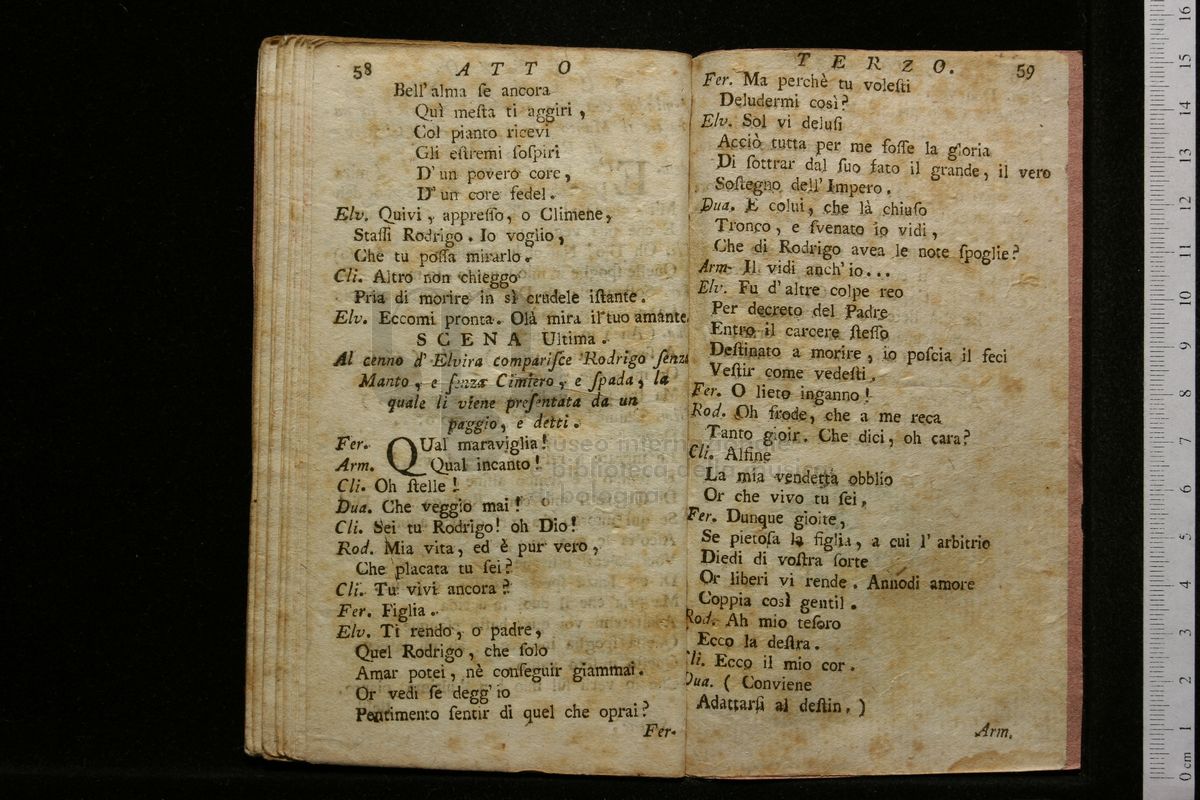 58 ATTO
Bell' alma ſe ancora
Quì meſta ti aggiri,
Col pianto ricevi
Gli eſtremi ſoſpiri
D' un povero core,
D' un core fedel.
Elv. Quivi, appreſſo, o Climene,
Staſſi Rodrigo. Io voglio,
Che tu poſſa mirarlo.
Cli. Altro non chieggo
Pria di morire in sì crudele iſtante.
Elv. Eccomi pronta. Olà mira il tuo amante.
SCENA Ultima.
Al cenno d' Elvira compariſce Rodrigo ſenza
Manto, e ſenza Cimiero, e ſpada, la
quale li viene preſentata da un
paggio, e detti.
Fer. QUal maraviglia!
Arm. Qual incanto!
Cli. Oh ſtelle!
Dua. Che veggio mai!
Cli. Sei tu Rodrigo! oh Dio!
Rod. Mia vita, ed è pur vero,
Che placata tu ſei?
Cli. Tu vivi ancora?
Fer. Figlia.
Elv. Ti rendo, o padre,
Quel Rodrigo, che ſolo
Amar potei, nè conſeguir giammai.
Or vedi ſe degg' io
Pentimento ſentir di quel che oprai?
Fer.
TERZO. 59
Fer. Ma perchè tu voleſti
Deludermi così?
Elv. Sol vi deluſi
Acciò tutta per me foſſe la gloria
Di ſottrar dal ſuo fato il grande, il vero
Soſtegno dell' Impero.
Dua. E colui, che là chiuſo
Tronco, e ſvenato io vidi,
Che di Rodrigo avea le note ſpoglie?
Arm. Il vidi anch' io...
Elv. Fu d' altre colpe reo
Per decreto del Padre
Entro il carcere ſteſſo
Deſtinato a morire, io poſcia il feci
Veſtir come vedeſti.
Fer. O lieto inganno!
Rod. Oh frode, che a me reca
Tanto gioir. Che dici, oh cara?
Cli. Alfine
La mia vendetta obblio
Or che vivo tu ſei.
Fer. Dunque gioite,
Se pietoſa la figlia, a cui l' arbitrio
Diedi di voſtra ſorte
Or liberi vi rende. Annodi amore
Coppia così gentil.
Rod. Ah mio teſoro
Ecco la deſtra.
Cli. Ecco il mio cor.
Dua. (Conviene
Adattarſi al deſtin.)
Arm.
museo internazionale
e biblioteca della musica
di bologna
0 cm 1 2 3 4 5 6 7 8 9 10 11 12 13 14 15 16